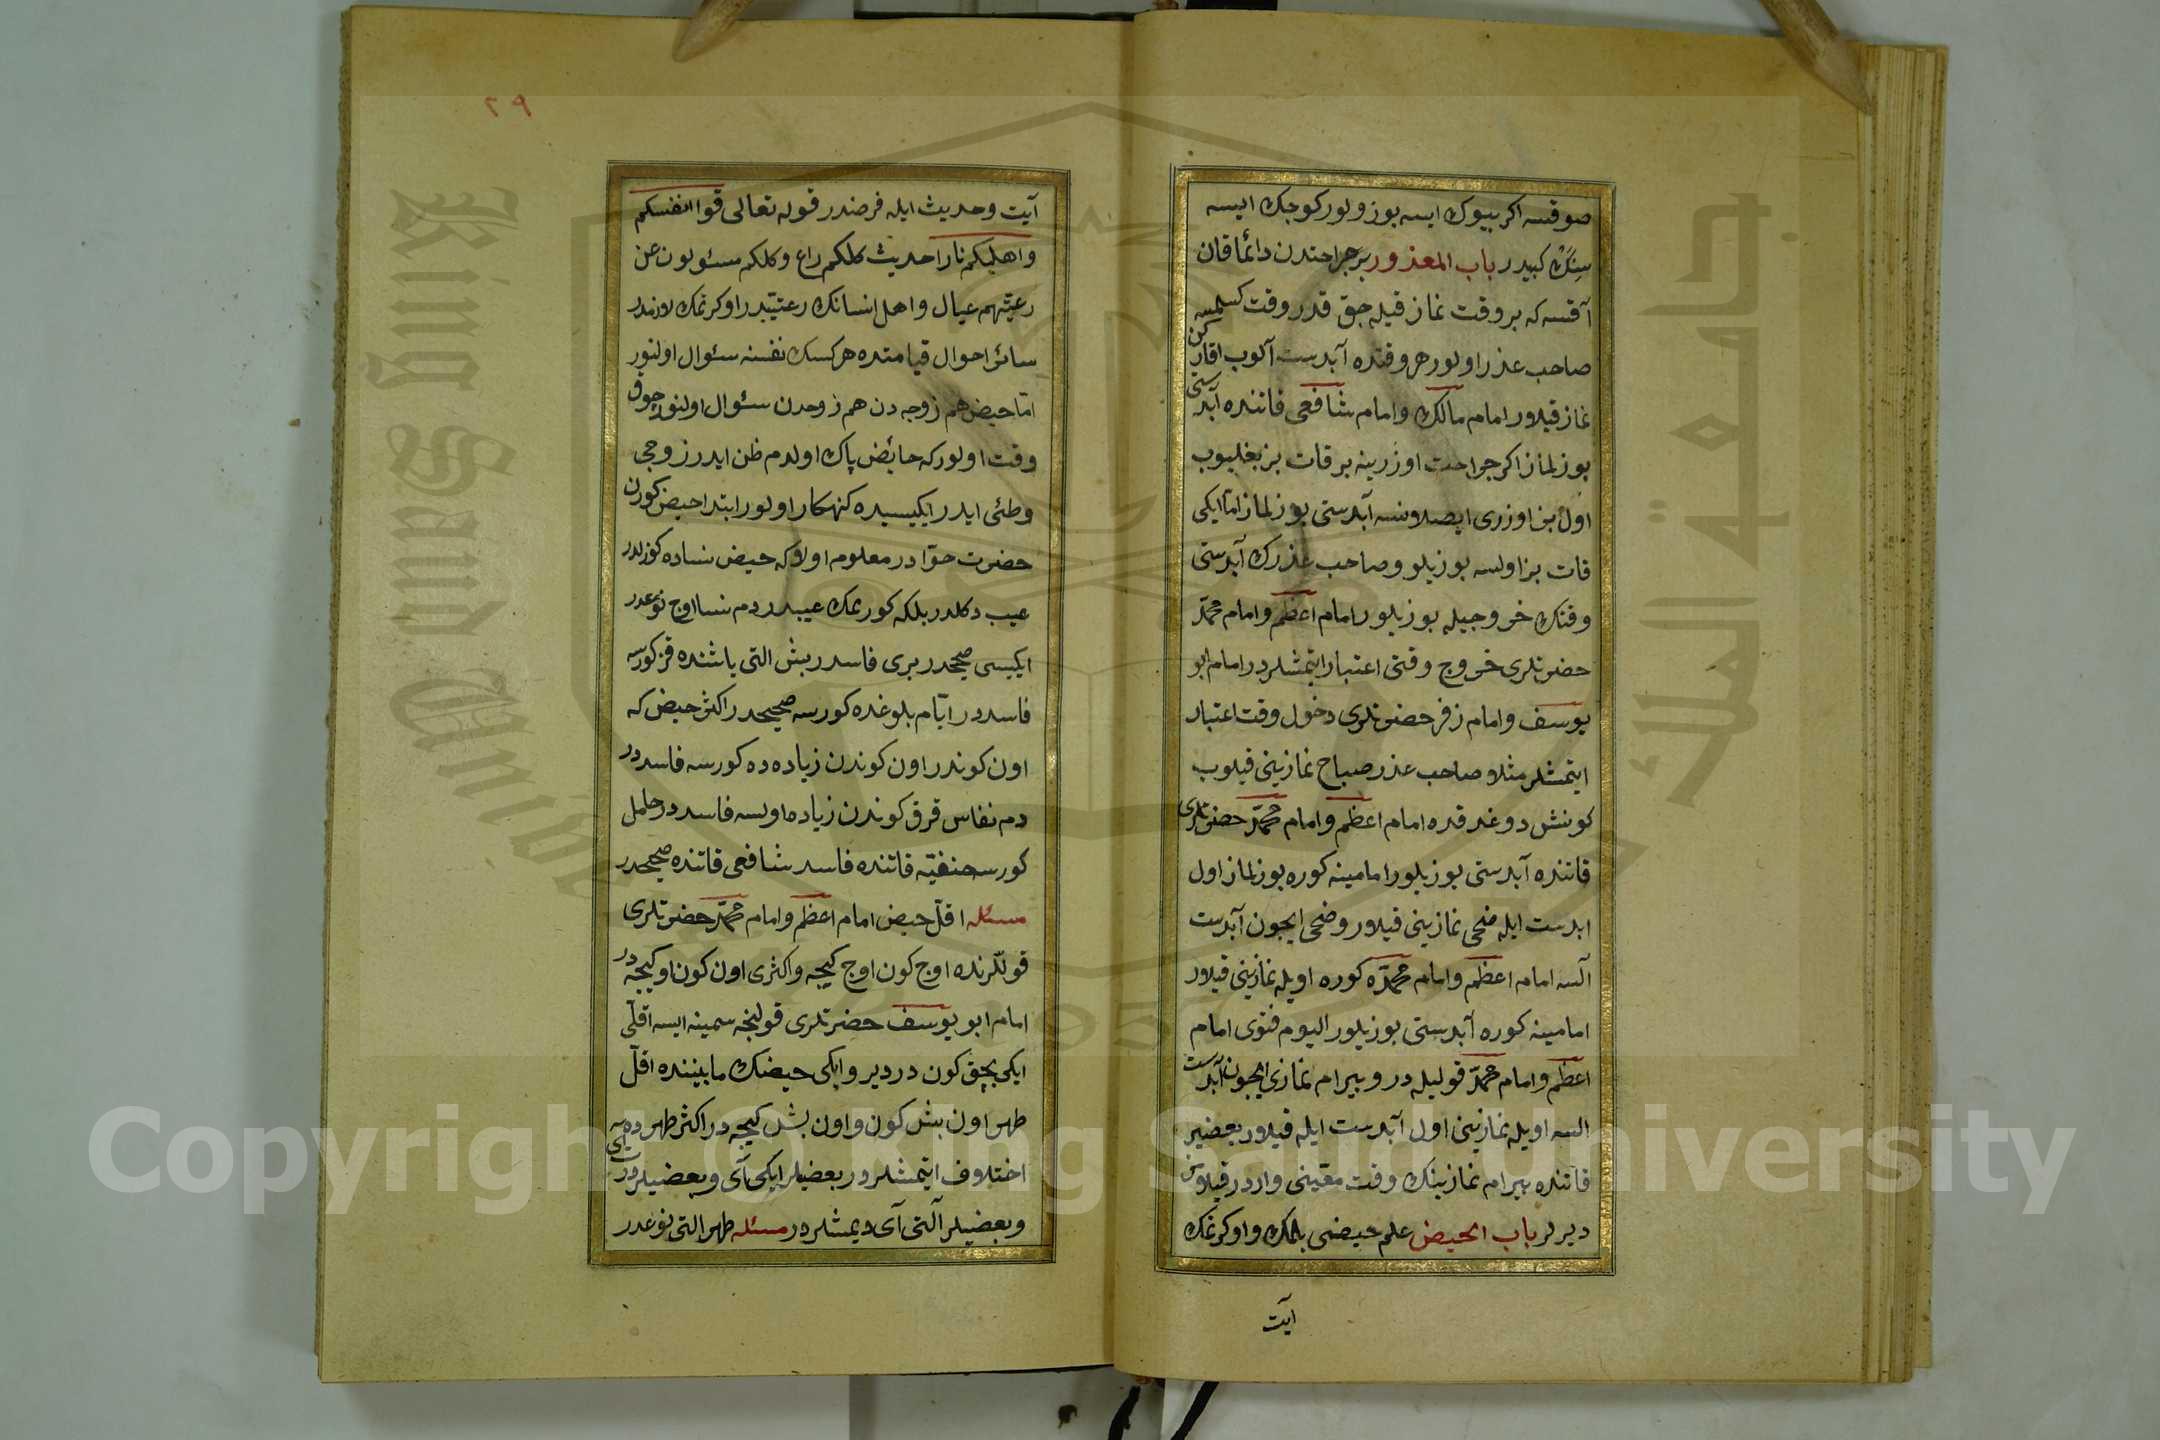 صوقسه اكر بيوك ايسه بوزولور كوچك ايسه
سنك كبيدر باب المعذور بر جراحتدن دائما قان
آقسه كه بر وقت نماز قيله جق قدر وقت كسلمسه
صاحب عذر اولور هر وقتده آبدست آلوب اقاركن
نماز قيلور امام مالك وامام شافعى قاتنده آبدستى
بوزلماز اكر جراحت اوزرينه بر قات بز بغليوب
اول بز اوزرى ايصلانسه آبدستى بوزلماز امّا ايكى
قات بز اولسه بوزيلور وصاحب عذرك آبدستى
وقتك خروجيله بوزيلور امام اعظم وامام محمّد
حضرتلرى خروج وقتى اعتبار ايتمشلردر امام ابو
يوسف وامام زفر حضرتلرى دخول وقت اعتبار
ايتمشلر مثلا صاحب عذر صباح نمازينى قيلوب
كونش دوغدقده امام اعظم وامام محمّد حضرتلرى
قاتنده آبدستى بوزيلور امامينه كوره بوزلماز اول
ابدست ايله ضحى نمازينى قيلور وضحى ايچون آبدست
آلسه امام اعظم وامام محمّده كوره اويله نمازينى قيلور
امامينه كوره آبدستى بوزيلور اليوم فتوى امام
اعظم وامام محمّد قوليله در وبيرام نمازى ايچون آبدست
السه اويله نمازينى اول آبدست ايله قيلور بعضيلر
قاتنده بيرام نمازينك وقت مقينى واردر قيلامز
ديرلر باب الحيض علم حيضى بلمك واوكرنمك
آيت
٢٩
آيت وحديث ايله فرضدر قوله تعالى قوا انفسكم
واهليكم نارا حديث كلكم راع وكلكم مسئولون عن
رعيتهم عيال واهل انسانك رعيتيدر اوكرتمك لازمدر
سائر احوال قيامتده هر كسك نفسنه سئوال اولنور
امّا حيض هم زوجه دن هم زوجدن سئوال اولنور چوق
وقت اولور كه حايض پاك اولدم ظن ايدر زوجى
وطئى ايدر ايكيسيده كنهكار اولور ابتدا حيض كورن
حضرت حوّا در معلوم اولا كه حيض نساده كوزلدر
عيب دكلدر بلكه كورنمك عيبدر دم نسا اوچ نوعدر
ايكيسى صحيحدر برى فاسددر بش التى ياشنده قز كورسه
فاسددر ايّام بلوغده كورسه صحيحدر اكثر حيض كه
اون كوندر اون كوندن زياده ده كورسه فاسددر
دم نفاس قرق كوندن زياده اولسه فاسددر حامل
كورسه حنفيّه قاتنده فاسد شافعى قاتنده صحيحدر
مسئله اقلّ حيض امام اعظم وامام محمّد حضرتلرى
قوللرنده اوچ كون اوچ كيجه واكثرى اون كون اون كيجه در
امام ابو يوسف حضرتلرى قولنجه سمينه ايسه اقلّى
ايكى بچق كون در دير وايكى حيضك مابيننده اقلّ
طهر اون بش كون واون بش كيجه در اكثر طهرده
اختلاف ايتمشلردر بعضيلر ايكى آى وبعضيلر درت آى
وبعضيلر آلتى آى ديمشلردر مسئله طهر التى نوعدر
King Saud University
جامعة الملك
Copyright © King Saud University